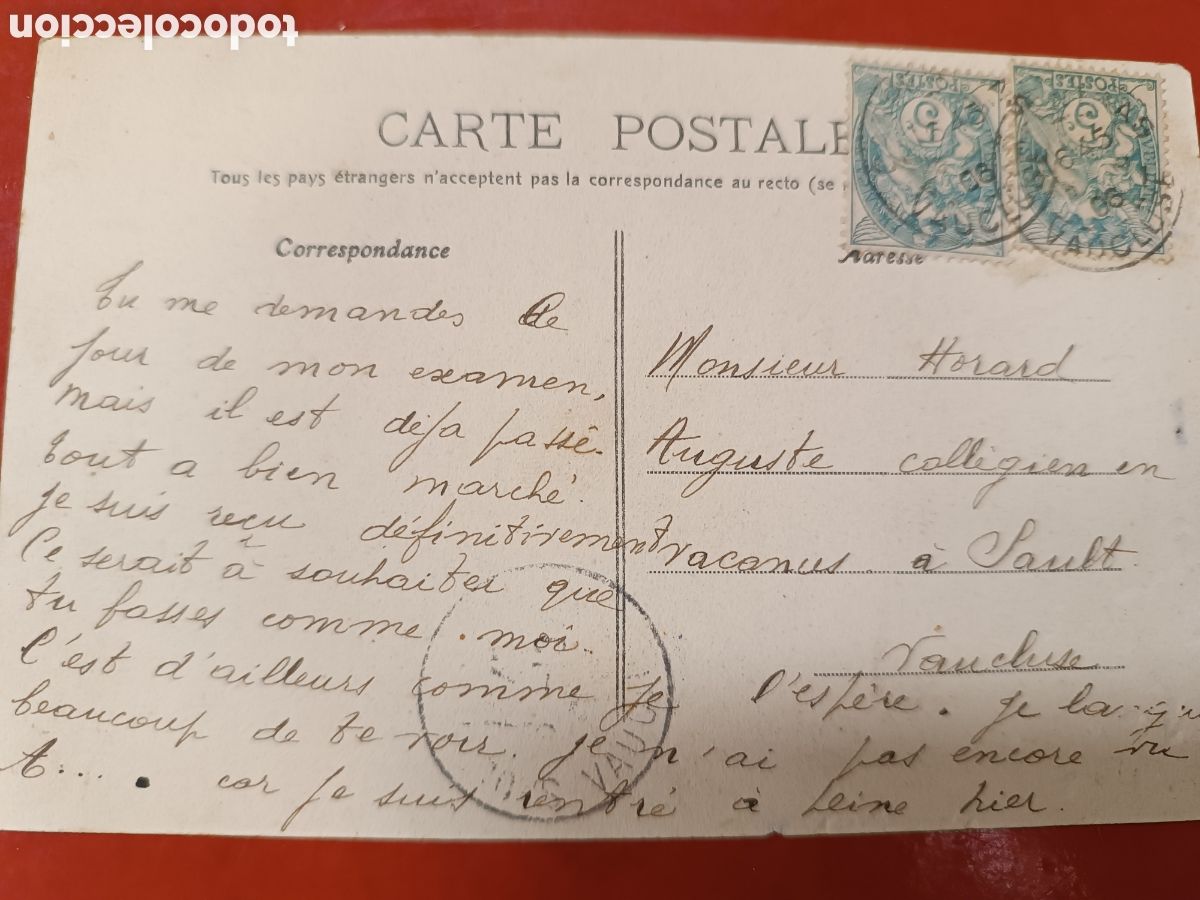 todocoleccion
CARTE POSTALE
Tous les pays étrangers n'acceptent pas la correspondance au recto (se
POSTES
POSTES
5
5
VAUCLUSE
Correspondance
Adresse
Tu me demandes le
jour de mon examen,
mais il est déja passé.
Tout a bien marché.
Je suis reçu définitivement
Ce serait à souhaiter que
tu fasses comme moi.
C'est d'ailleurs comme je l'espère. Je
beaucoup de te voir. je n'ai pas encore vu
A.... car je suis rentré à peine hier.
Monsieur Horard
Auguste collégien en
vacances à Sault
Vaucluse